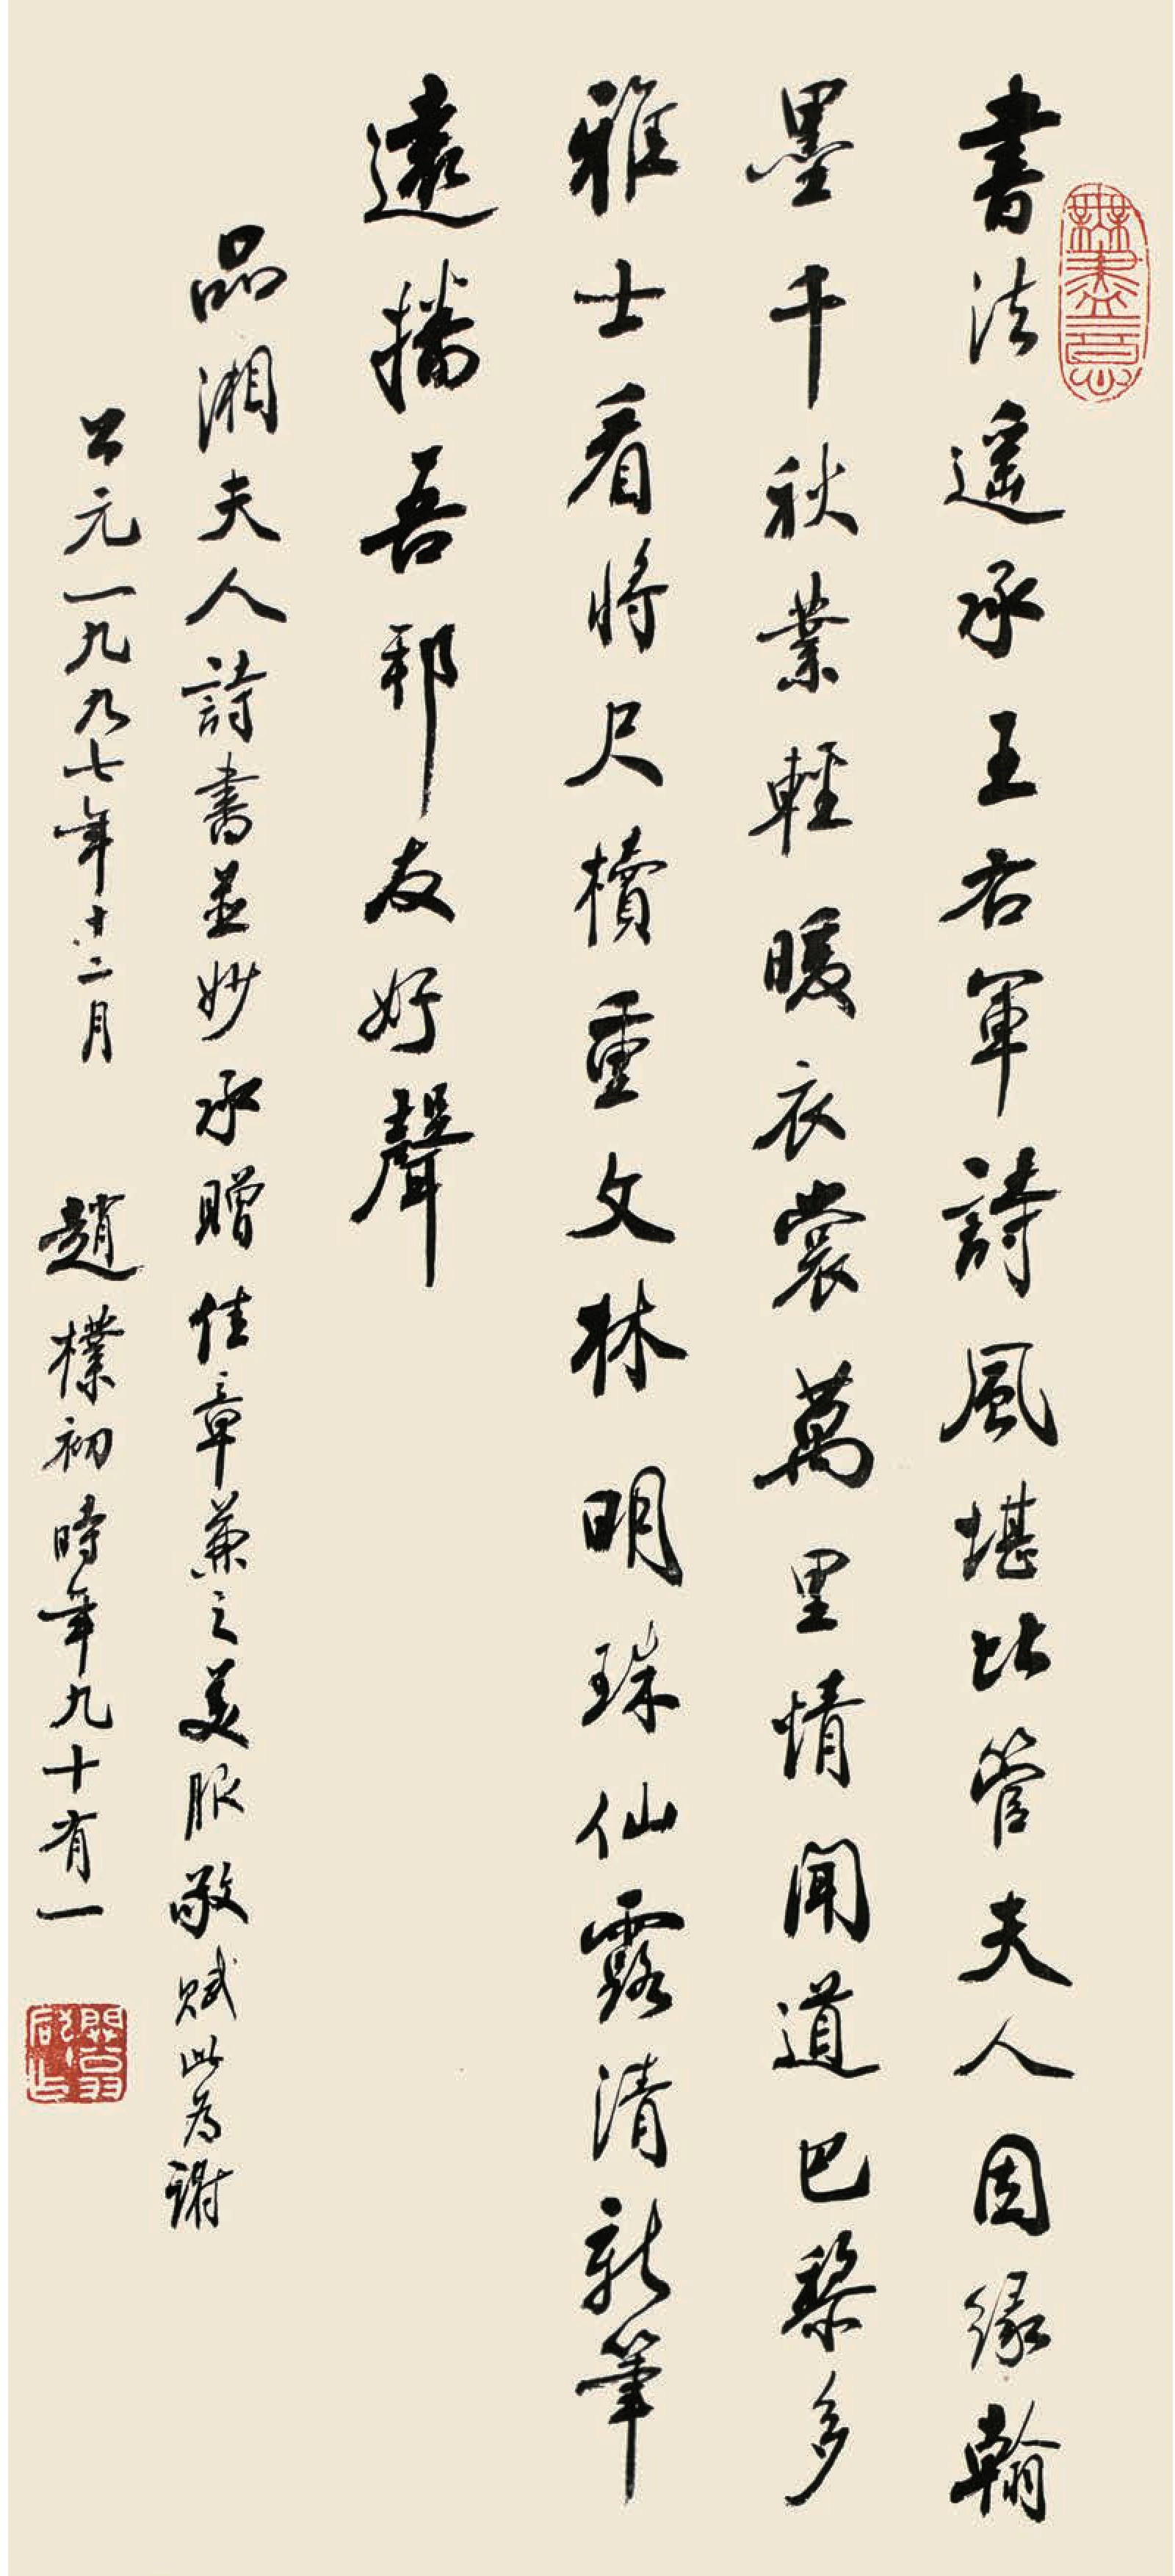 書法遥承王右軍詩風堪比管夫人因緣翰
墨千秋業輕暖衣裳萬里情聞道巴黎多
雅士看將尺櫝重文林明珠仙露清新筆
遠播吾邦友好聲
品湘夫人詩書並妙承贈佳章兼之美服敬賦此為謝
公元一九九七年十二月 趙樸初時年九十有一
無盡意